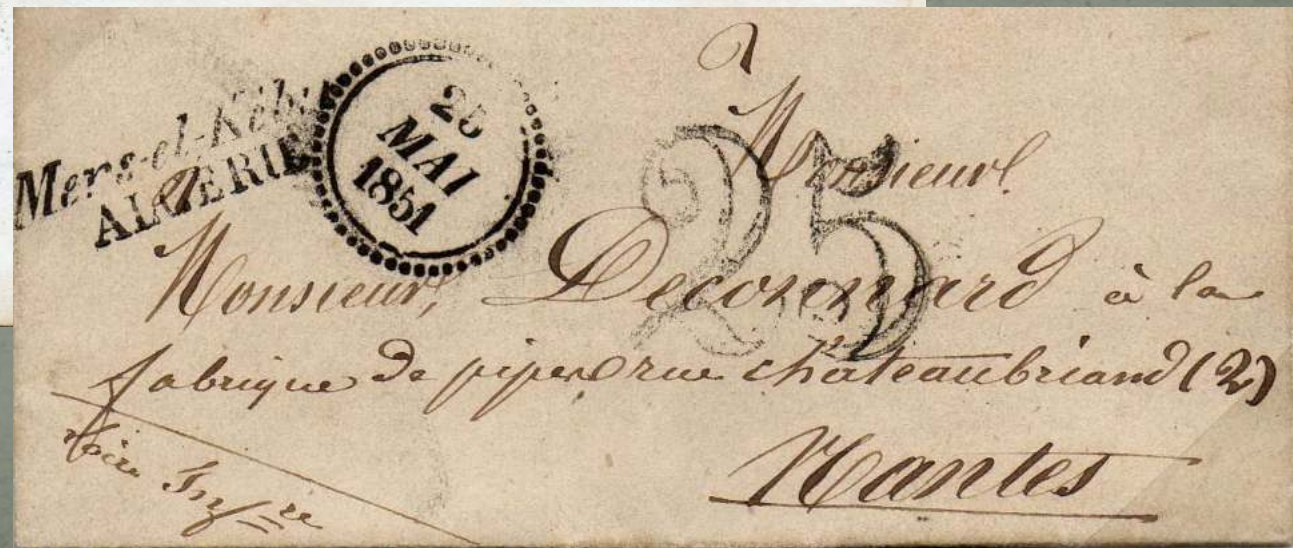 Mers-el-Kébir
ALGERIE
25
MAI
1851
25
A
Monsieur
Monsieur, Deconnard à la
fabrique de pipes rue chateaubriand (2)
Nantes
Loire Infre